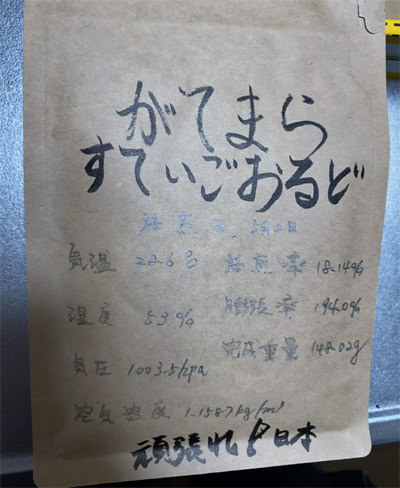 がてまら
すてぃごおるど
焙煎日 5月2日
気温 28.6℃ 焙煎率 18.14%
湿度 53% 膨張率 194.0%
気圧 1003.5hpa 完成重量 148.02g
空気密度 1.1587kg/m³
頑張れ!日本